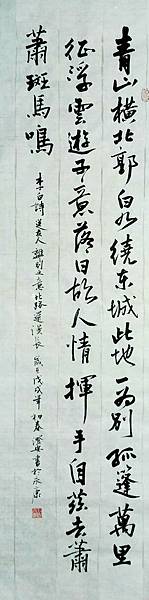 青山橫北郭白水繞东城此地一為別孤蓬萬里
征浮雲遊子意落日故人情揮手自茲去蕭
蕭斑馬鳴
李白詩送友人 戊戌年初春 書於